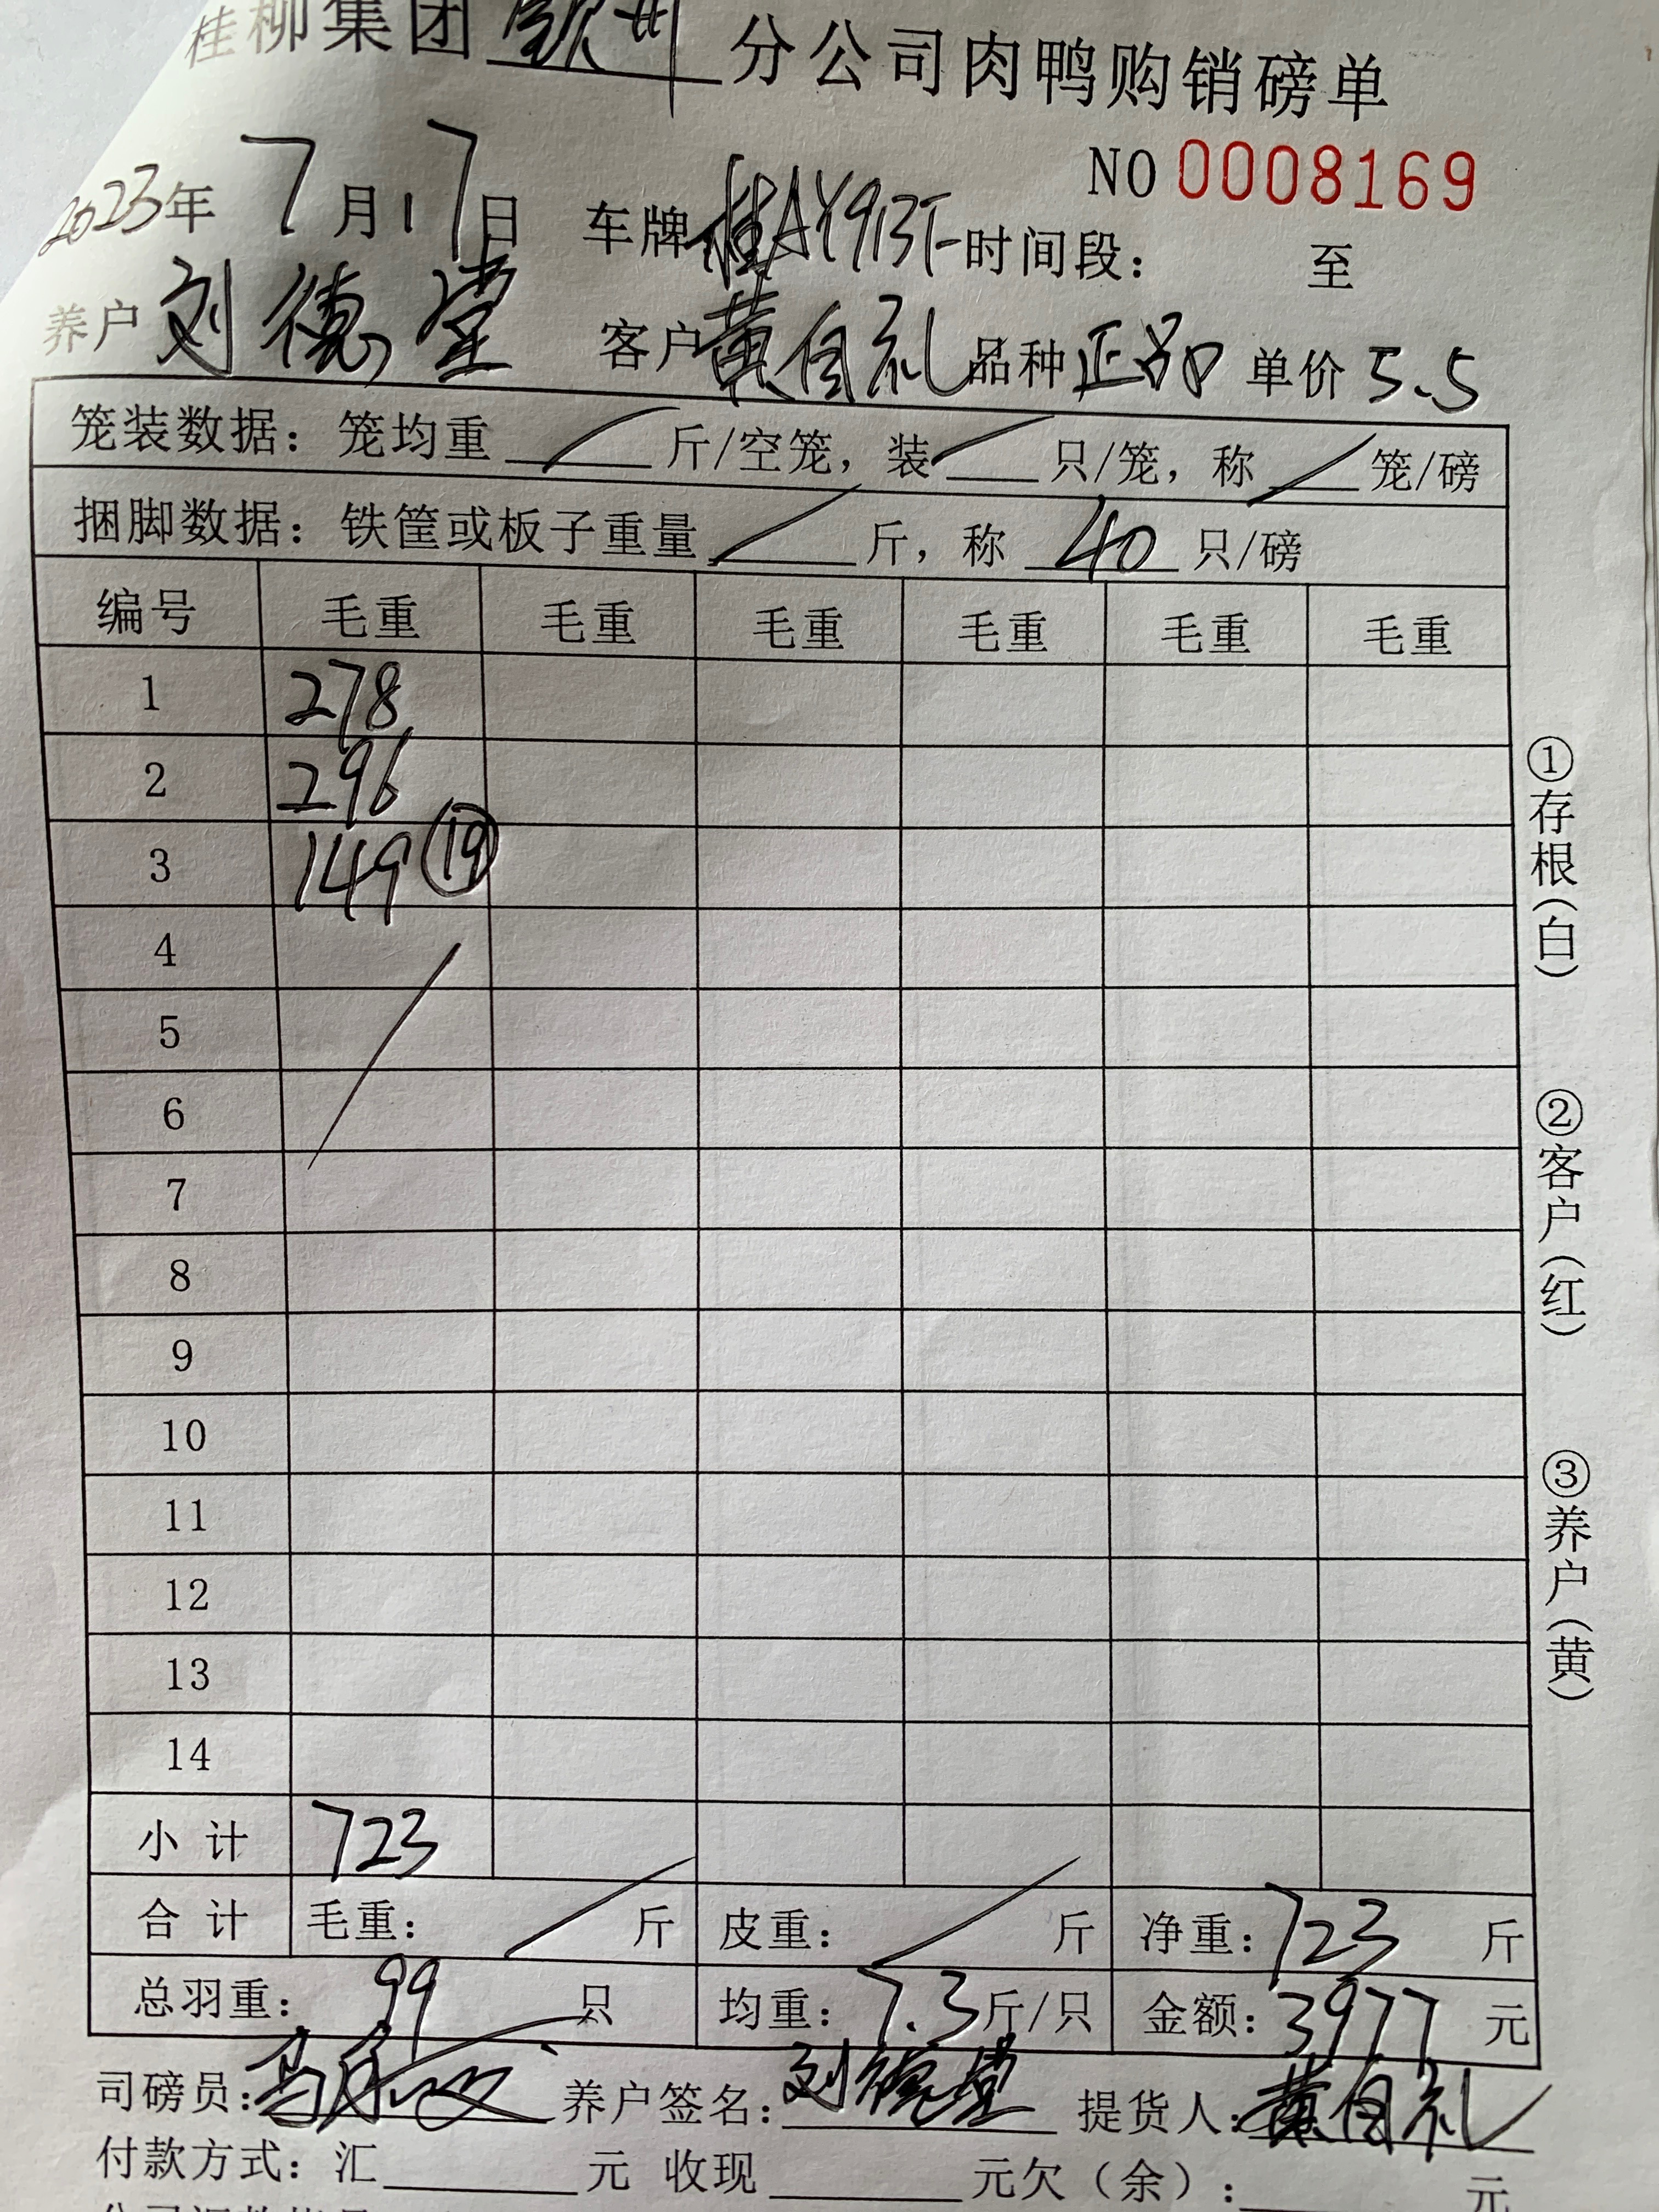 桂柳集团 钦州 分公司肉鸭购销磅单
NO 0008169
2023年 7月17日 车牌 桂AY913F 时间段： 至
养户 刘德堂 客户 黄自礼 品种 正品 单价 5.5
笼装数据：笼均重 / 斤/空笼，装 / 只/笼，称 / 笼/磅
捆脚数据：铁筐或板子重量 / 斤，称 40 只/磅
编号 毛重 毛重 毛重 毛重 毛重 毛重
1 278
2 296
3 149 ⑲
4
5
6
7
8
9
10
11
12
13
14
小计 723
合计 毛重： / 斤 皮重： / 斤 净重：723 斤
总羽重：99 只 均重：7.3斤/只 金额：3977 元
司磅员： 养户签名：刘德堂 提货人：黄自礼
付款方式：汇 元 收现 元欠（余）： 元
①存根（白）
②客户（红）
③养户（黄）